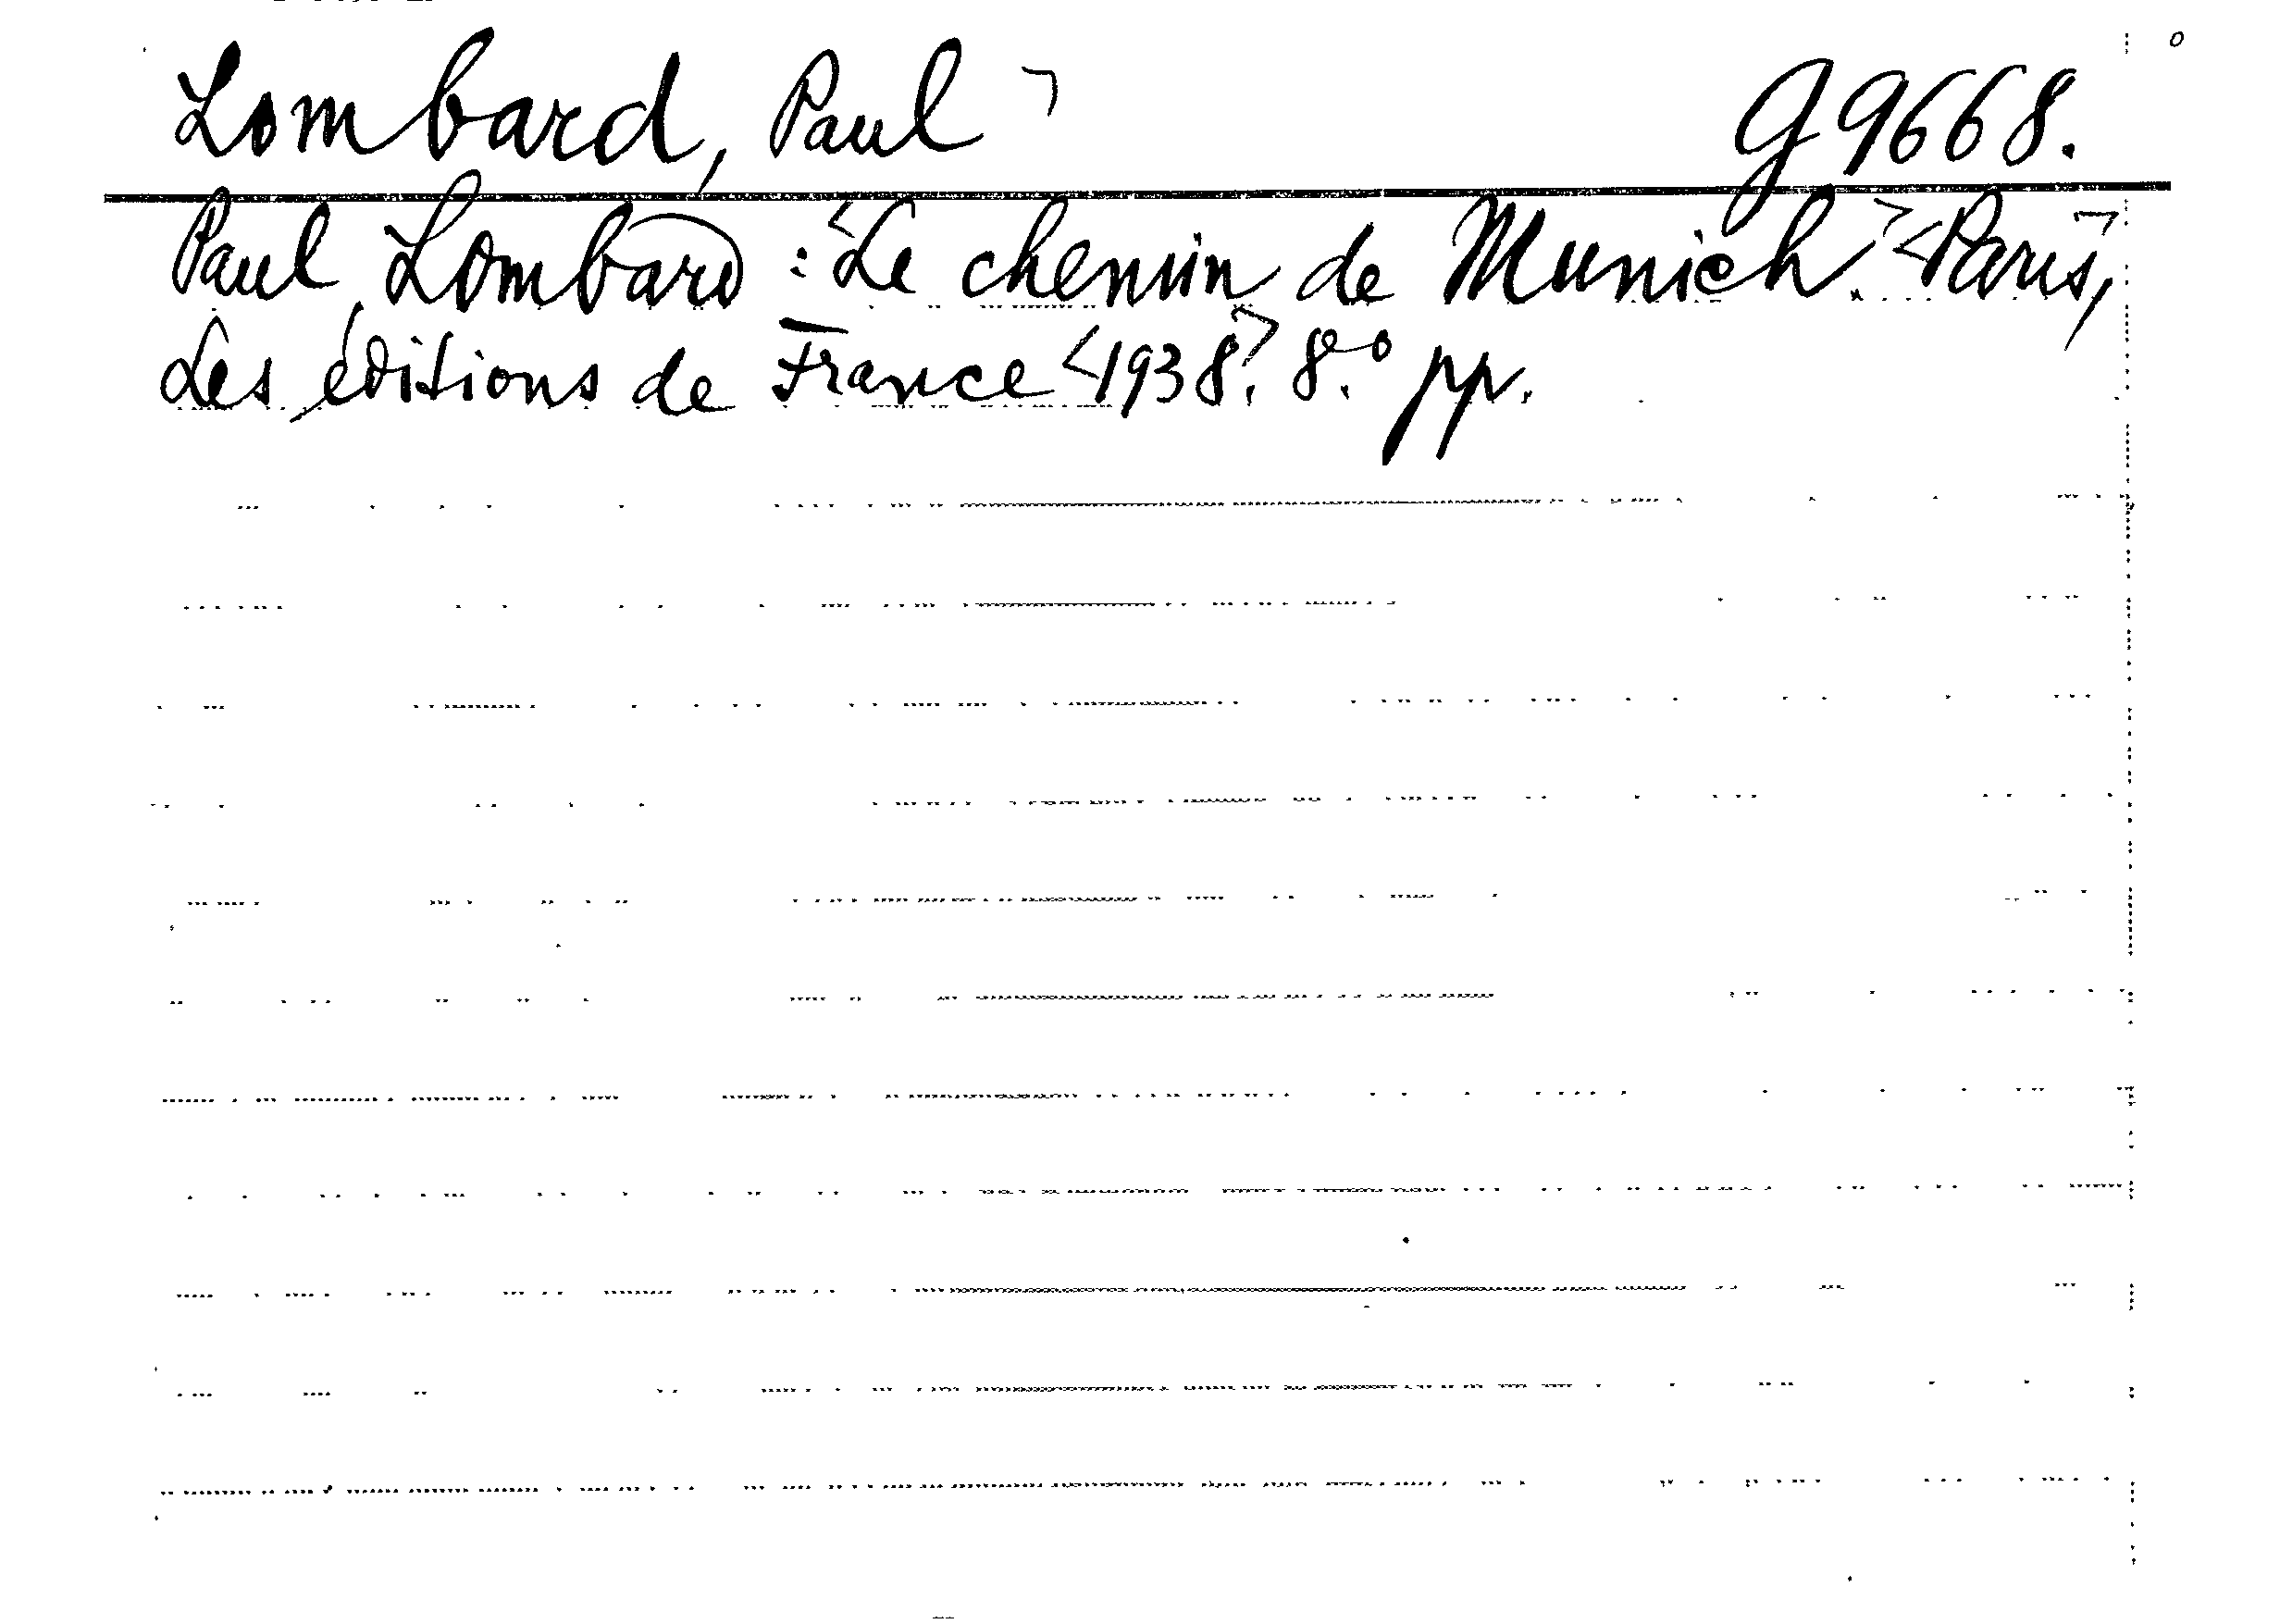 Lombard, Paul ㄱ G 9668.
Paul Lombard: <Le chemin de Munich.> <Paris,ㄱ
Les éditions de France <1938.> 8.º pp.